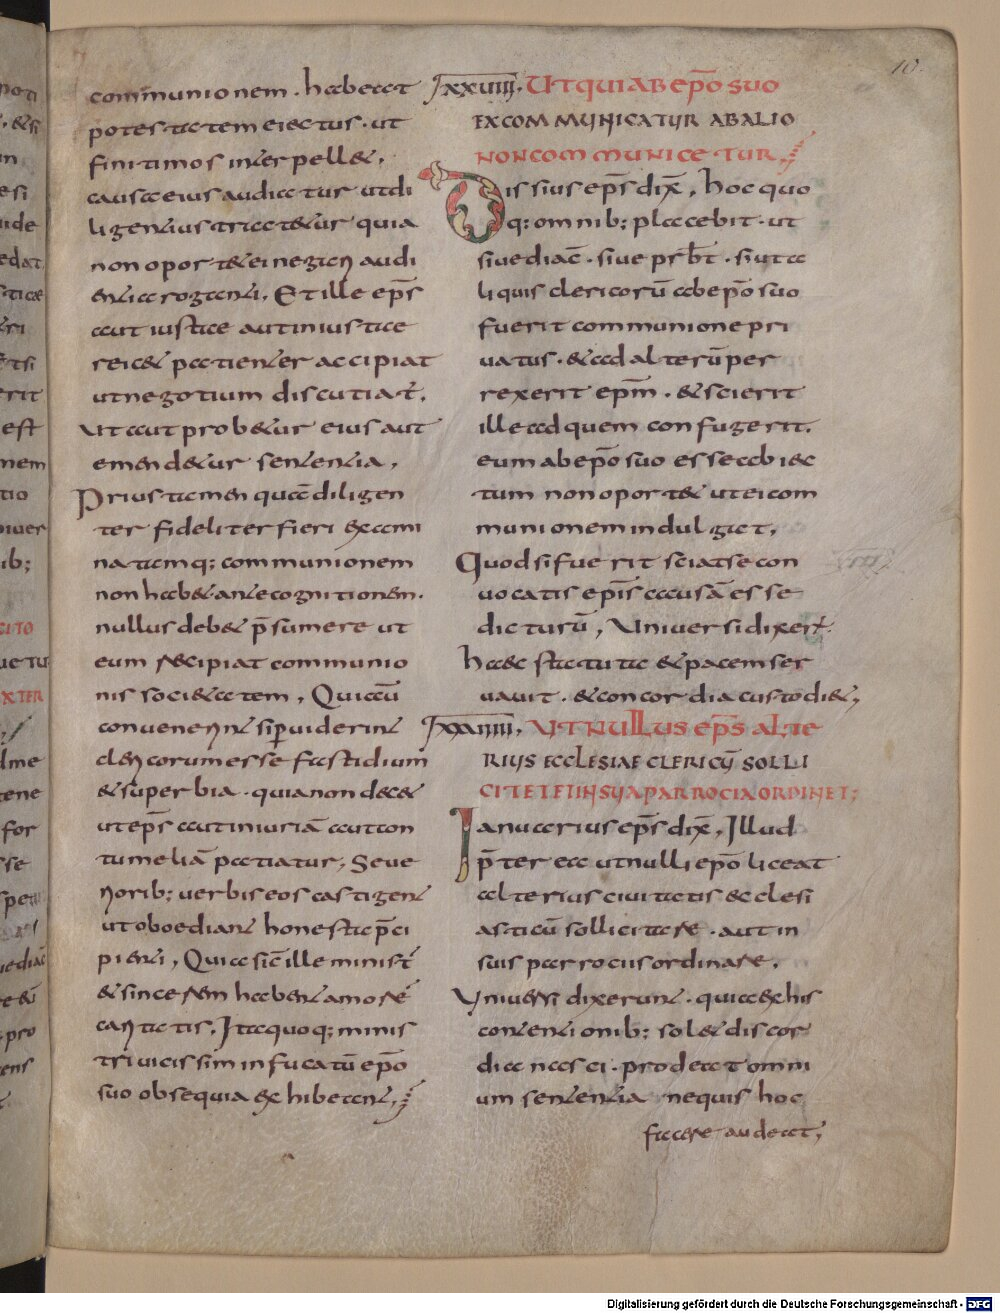 10.
communionem. habeat
potestatem eiectus. ut
finitimos interpellet,
causa eius audiatur ut di
ligentius tractetur quia
non oportet ei negari audi
entia roganti. Et ille ep̄s
aut iuste aut iniuste
reicet patienter accipiat
ut negotium discutiat̄.
Ut aut probetur eius aut
emendetur sententia,
Prius tamen quā diligen
ter fideliter fieri exami
natamq; communionem
non habet ante cognitionem.
nullus debet p̄sumere ut
eum recipiat communio
nis societatem, Quicū
convenerint si perviderint
clericorum esse fastidium
et superbia. quia non decet
ut ep̄s aut iniuriā aut con
tumeliā patiatur, Seve
riorib; verbis eos castigent
ut oboediant honesta p̄ci
pienti, Quia sic̄ ille minist̄
et sincerem habent amore
caritatis, Itaquoq; minis
tri vicissim infucatū ep̄o
suo obsequia exhibeant,
xxviiii. UT QUI AB ep̄o suo
EXCOMMUNICATUR AB ALIO
NON COMMUNICETUR,
Dissius ep̄s dix̄, hoc quo
q; omnib; placebit. ut
sive diac̄. sive prb̄t. sive ta
liquis clericorū ab ep̄o suo
fuerit communione pri
vatus. et ad alterū per
rexerit ep̄m. et scierit
ille ad quem confugerit.
eum ab ep̄o suo esse abiec
tum non oportet ut ei com
munionem indulgiat,
Quod si fuerit sciat se con
vocatis ep̄is accusā esse
dicturū, Universi dixer̄t.
haec statuta et pacem ser
vavit. et concordia custodiet,
UT NULLUS ep̄s alte
RIUS ECCLESIAE CLERICŪ SOLLI
CITET ET IN SUA PARROCIA ORDINET;
Ianuarius ep̄s dix̄, Illud
p̄terea ut nulli ep̄o liceat
alterius civitatis ecclesi
asticū sollicitare. aut in
suis parrociis ordinare,
Universi dixerunt. quia ex his
contentionib; solet discor
dia nasci. prodeat omni
um sententia nequis hoc
facere audeat;
Digitalisierung gefördert durch die Deutsche Forschungsgemeinschaft - DFG